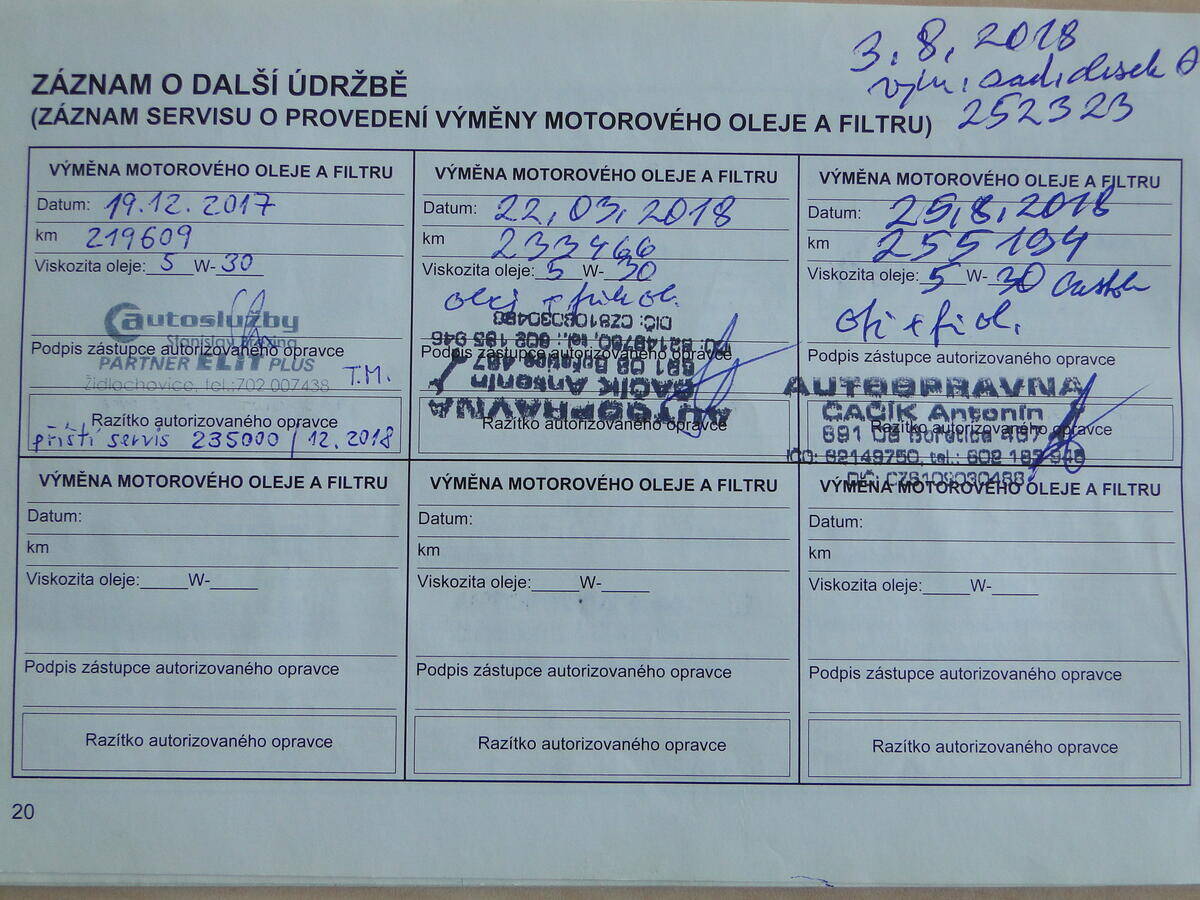 3. 8. 2018
252323
ZÁZNAM O DALŠÍ ÚDRŽBĚ
(ZÁZNAM SERVISU O PROVEDENÍ VÝMĚNY MOTOROVÉHO OLEJE A FILTRU)
VÝMĚNA MOTOROVÉHO OLEJE A FILTRU
Datum: 19.12.2017
km 219609
Viskozita oleje: 5 W- 30
autoslužby
Stanislav
Podpis zástupce autorizovaného opravce
PARTNER ELIT PLUS
Židlochovice, tel.:702 007438 T.M.
Razítko autorizovaného opravce
příští servis 235000 / 12.2018
VÝMĚNA MOTOROVÉHO OLEJE A FILTRU
Datum: 22,03,2018
km 233466
Viskozita oleje: 5 W- 30
olej +
Podpis zástupce autorizovaného opravce
AUTOOPRAVNA
ČAČÍK Antonín
Razítko autorizovaného opravce
VÝMĚNA MOTOROVÉHO OLEJE A FILTRU
Datum: 25,8,2018
km 255194
Viskozita oleje: 5 W- 30
Podpis zástupce autorizovaného opravce
AUTOOPRAVNA
ČAČÍK Antonín
Razítko autorizovaného opravce
VÝMĚNA MOTOROVÉHO OLEJE A FILTRU
Datum:
km
Viskozita oleje:_____W-_____
Podpis zástupce autorizovaného opravce
Razítko autorizovaného opravce
VÝMĚNA MOTOROVÉHO OLEJE A FILTRU
Datum:
km
Viskozita oleje:_____W-_____
Podpis zástupce autorizovaného opravce
Razítko autorizovaného opravce
VÝMĚNA MOTOROVÉHO OLEJE A FILTRU
Datum:
km
Viskozita oleje:_____W-_____
Podpis zástupce autorizovaného opravce
Razítko autorizovaného opravce
20